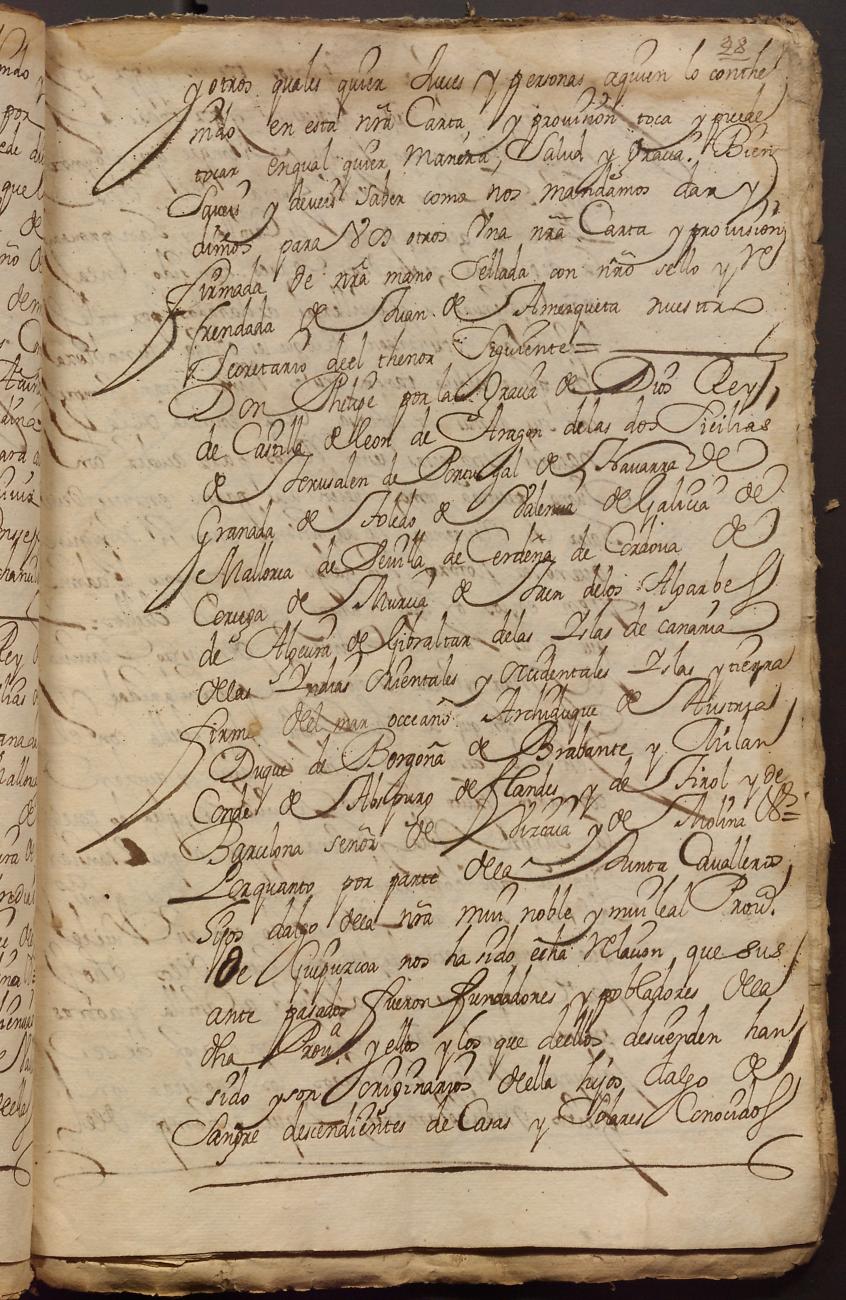 98
y otros quales quier Jueces y personas aquien lo conthe
nido en esta nrã Carta y provision toca y puede
tocar en qual quier manera, Salud y Gracia. Bien
Saveis y deveis saber como nos mandamos dar y
dimos para Vos otros Una nrã Carta y provision
firmada de nrã mano Sellada con nrõ sello y Re
frendada de Juan de Amezqueta nuestro
Secretario de el thenor Siguiente =
Don Phelipe por la Gracia de Dios Rey
de Castilla de Leon de Aragon de las dos Sicilias
de Jerusalen de Portugal de Navarra de
Granada de Toledo de Valencia de Galicia de
Mallorca de Sevilla de Cerdeña de Cordova de
Corçega de Murcia de Jaen de los Algarbes
de Algeçira de Gibraltar de las Yslas de canaria
de las Yndias Orientales y occidentales Yslas y tierra
firme del mar occeano Archiduque de Austria
Duque de Borgoña de Brabante y Milan
Conde de Abspurg de flandes y de Tirol y de
Barcelona señor de Vizcaia y de Molina &ª =
Por quanto por parte de la Junta Cavalleros
hijos dalgo de la nrã mui noble y mui leal Provª.
de Guipuzcoa nos ha sido echa Relacion que sus
ante pasados fueron fundadores y pobladores de la
dha Provª y ellos y los que de ellos descienden han
sido y son originarios de ella hijos dalgo de
Sangre descendientes de Casas y Solares Conocidos